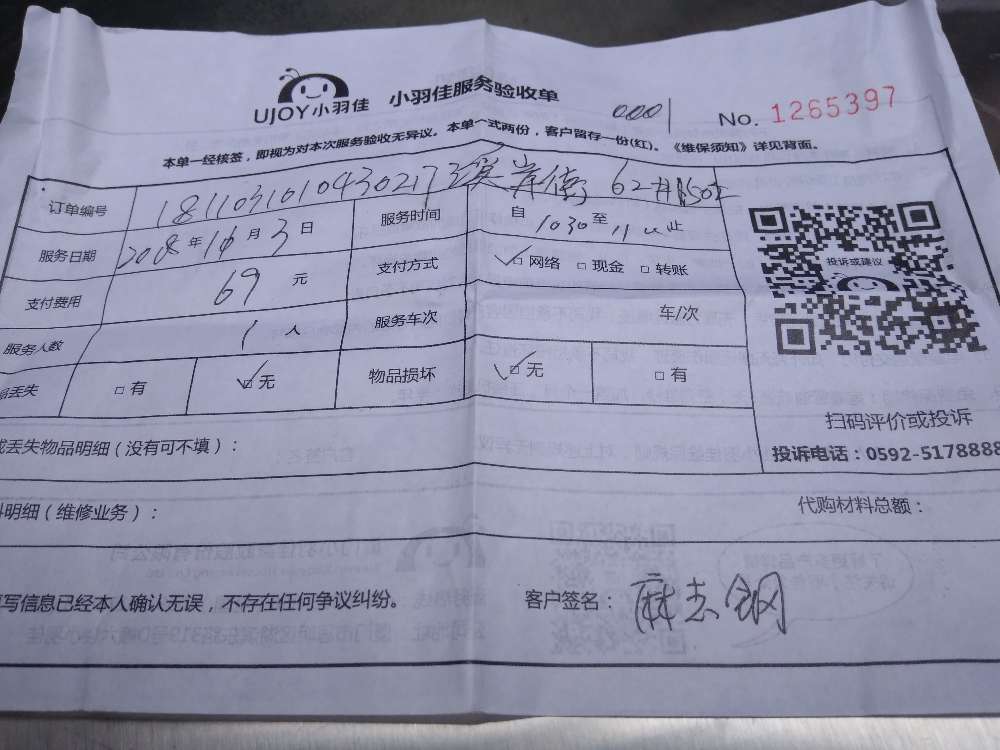 UJOY小羽佳 小羽佳服务验收单
No. 1265397
本单一经核签,即视为对本次服务验收无异议。本单一式两份,客户留存一份(红)。《维保须知》详见背面。
订单编号 18110310104302173 岸街 62#
服务日期 2018年11月3日 服务时间 自1030至11 止
支付费用 69元 支付方式 网络 现金 转账
服务人数 1人 服务车次 车/次
丢失 有 无 物品损坏 无 有
投诉或建议
扫码评价或投诉
投诉电话:0592-5178888
丢失物品明细(没有可不填):
明细(维修业务): 代购材料总额:
写信息已经本人确认无误,不存在任何争议纠纷。 客户签名:麻志钢